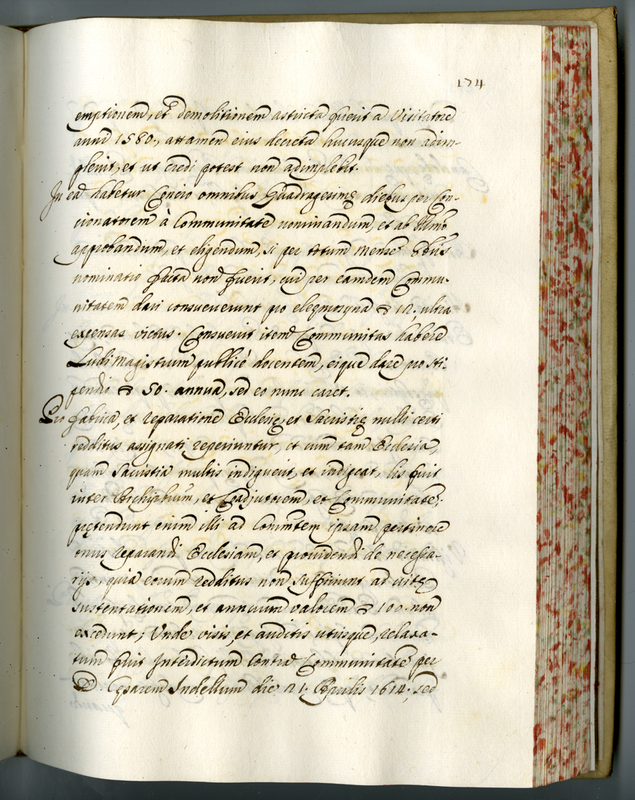 174
emptionem, et demolitionem astricta fuerit a Visitatore
anni 1580., attamen eius decreta hucusque non adim-
plevit, et ut credi potest non adimplebit.
In ea habetur Concio omnibus Quadragesimę diebus per Con-
cionatorem à Communitate nominandum, et ab Illmo
approbandum, et eligendum, si per totum mensem 8bris
nominatio facta non fuerit, cui per eamdem Commu-
nitatem dari consueverunt pro eleemosyna 12. ultra
expensas victus. Consuevit item Communitas habere
Ludi magistrum publicè docentem, eique dare pro sti-
pendio 50. annua, sed eo nunc caret.
Pro fabrica, et reparatione Ecclesię, et Sacristię nulli certi
redditus assignati reperiuntur, et cum tam Ecclesia,
quam Sacristia multis indigeant, et indigeat, lis fuit
inter Archiprbrum, et Coadjutorem, et Communitatem;
pretendunt enim illi ad Commtem ipsam pertinere
onus reparandi Ecclesiam, et providendi de necessa-
rijs, quia eorum redditus non sufficiunt ad vitę
sustentationem, et annuum valorem 100. non
excedunt; Unde visis, et auditis utrisque, relaxa-
tum fuit Interdictum contra Communitatem per
D. Cęsarem Indellum die 21. Aprilis 1614, sed